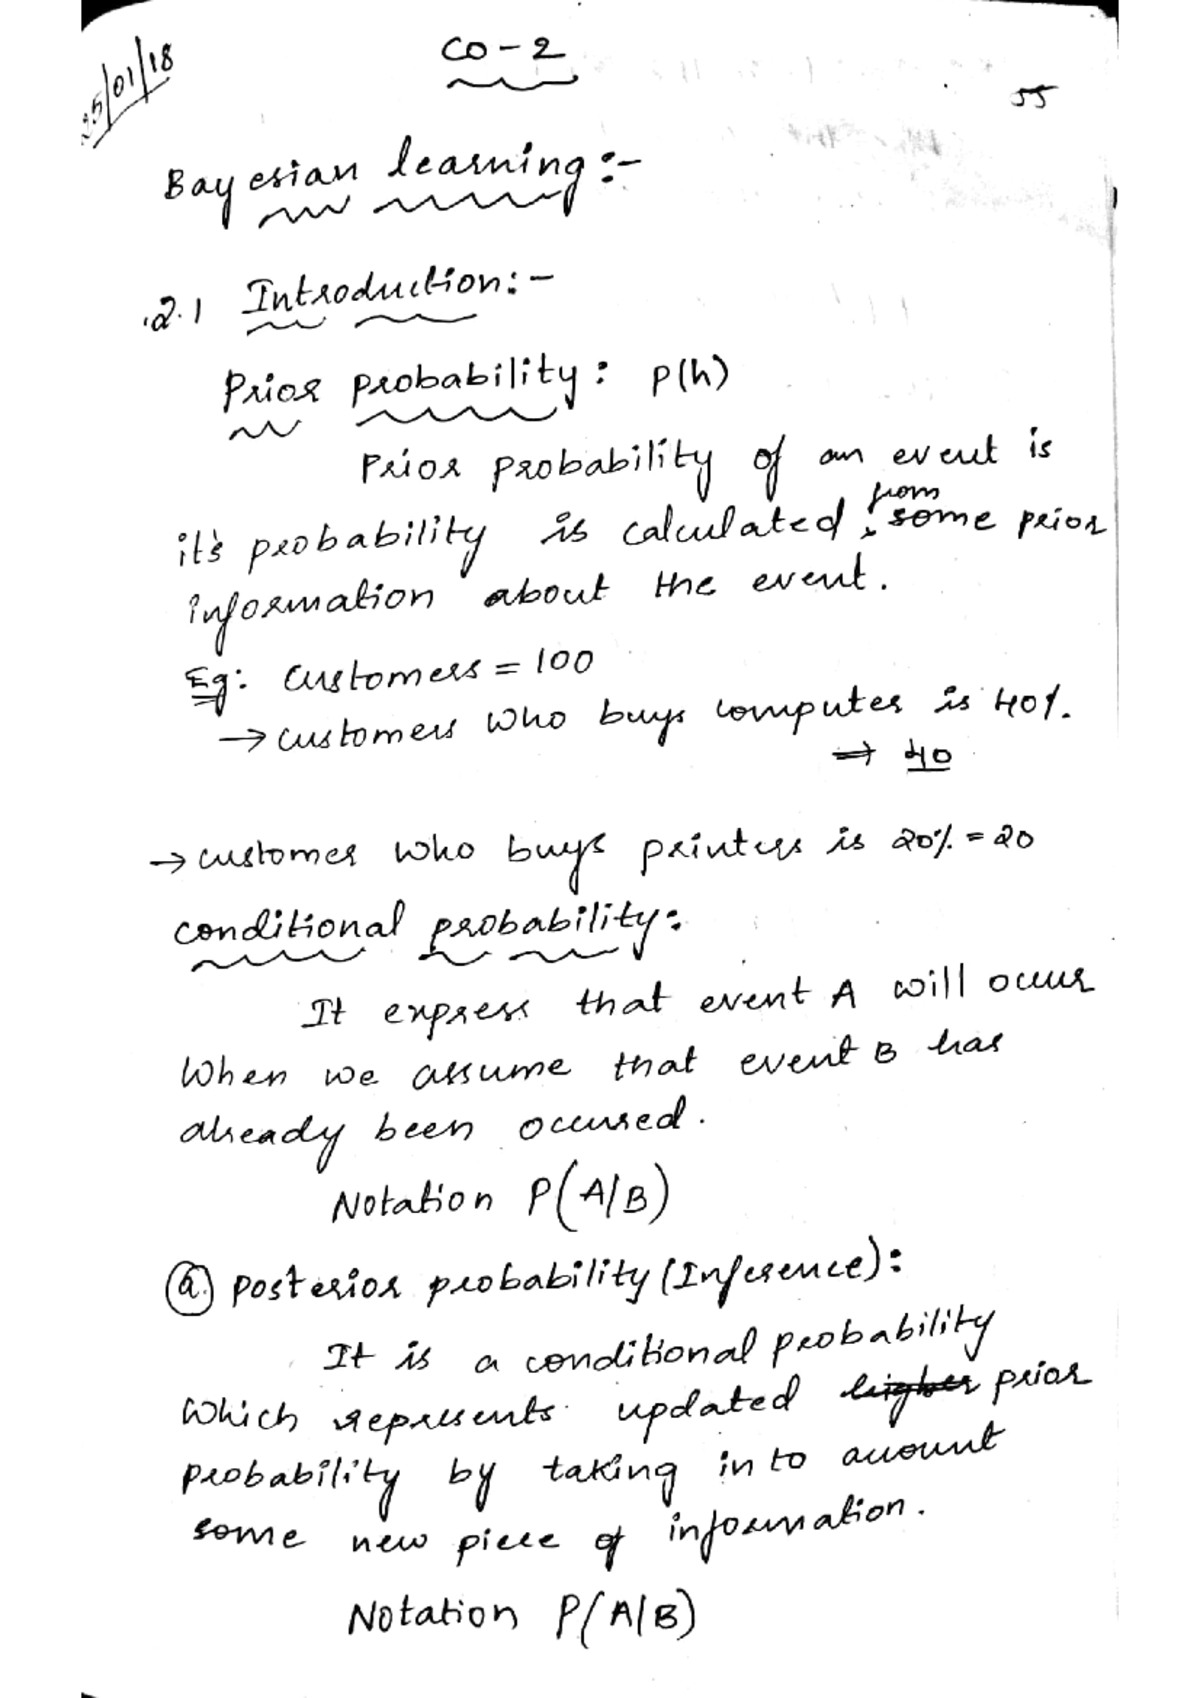 25/01/18
CO-2
55
Bayesian learning:-
2.1 Introduction:-
Prior probability: p(h)
Prior probability of an event is
it's probability is calculated from some prior
information about the event.
Eg: Customers = 100
→ customers who buys computer is 40%.
⇒ 40
→ customer who buys printers is 20% = 20
conditional probability:
It express that event A will occur
When we assume that event B has
already been occured.
Notation P(A/B)
a. Posterior probability (Inference):
It is a conditional probability
which represents updated higher prior
probability by taking in to account
some new piece of information.
Notation P(A/B)